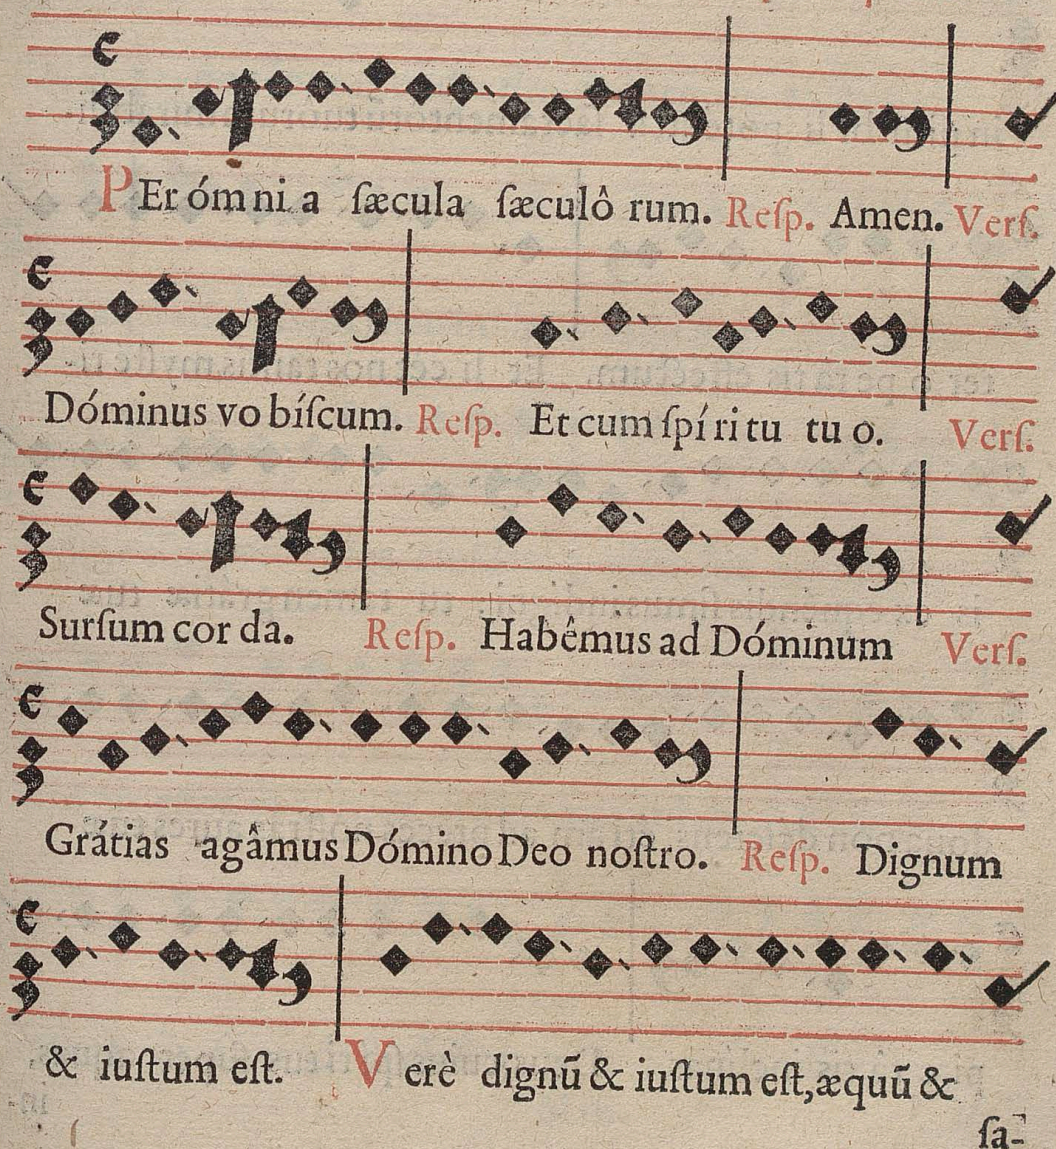 PEr ómni a ſæcula ſæculô rum. Reſp. Amen. Verſ.
Dóminus vo bíſcum. Reſp. Et cum ſpí ri tu tu o. Verſ.
Surſum cor da. Reſp. Habêmus ad Dóminum Verſ.
Grátias agâmus Dómino Deo noſtro. Reſp. Dignum
& iuſtum eſt. Verè dignū & iuſtum eſt, æquū &
ſa-